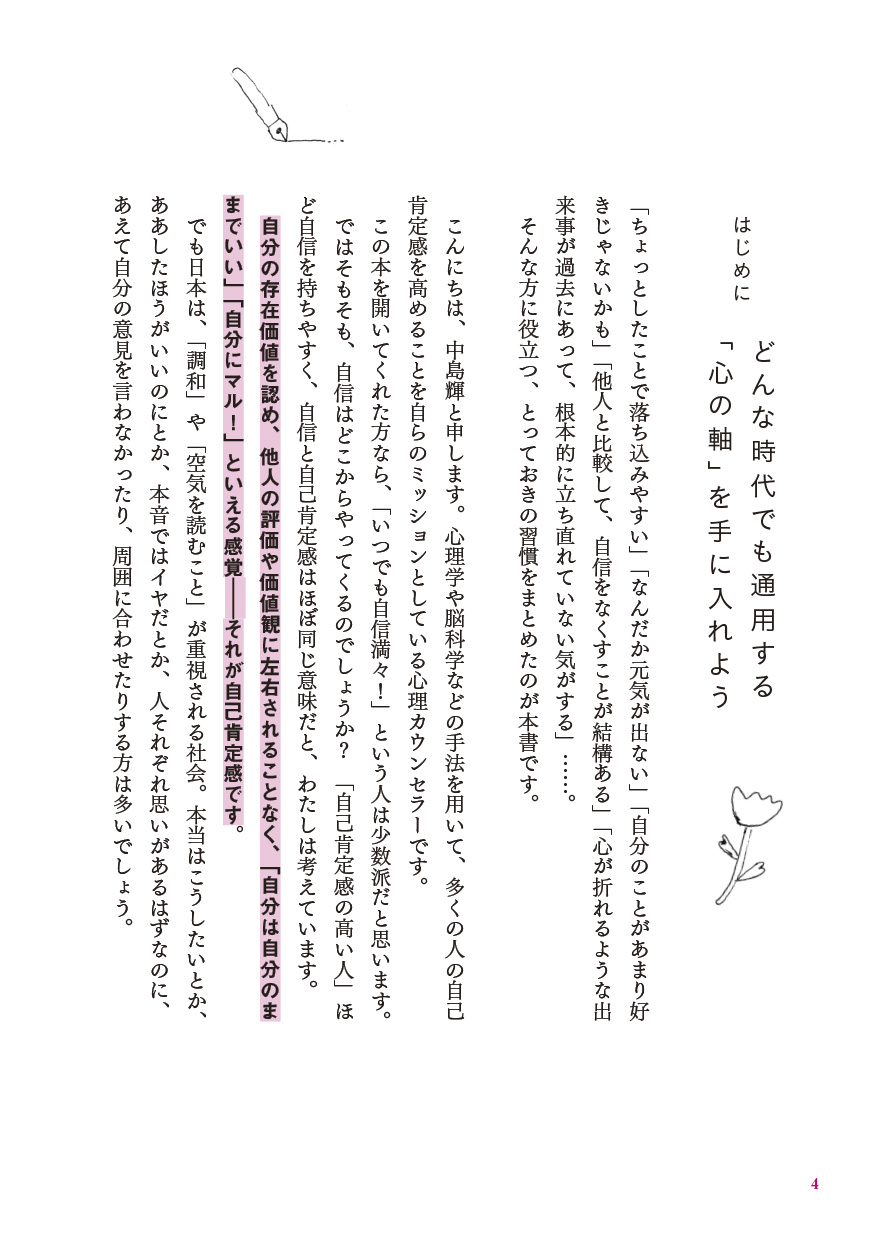 はじめに
どんな時代でも通用する
「心の軸」を手に入れよう
「ちょっとしたことで落ち込みやすい」「なんだか元気が出ない」「自分のことがあまり好
きじゃないかも」「他人と比較して、自信をなくすことが結構ある」「心が折れるような出
来事が過去にあって、根本的に立ち直れていない気がする」……。
そんな方に役立つ、とっておきの習慣をまとめたのが本書です。
こんにちは、中島輝と申します。心理学や脳科学などの手法を用いて、多くの人の自己
肯定感を高めることを自らのミッションとしている心理カウンセラーです。
この本を開いてくれた方なら、「いつでも自信満々！」という人は少数派だと思います。
ではそもそも、自信はどこからやってくるのでしょうか？　「自己肯定感の高い人」ほ
ど自信を持ちやすく、自信と自己肯定感はほぼ同じ意味だと、わたしは考えています。
自分の存在価値を認め、他人の評価や価値観に左右されることなく、「自分は自分のま
までいい」「自分にマル！」といえる感覚──それが自己肯定感です。
でも日本は、「調和」や「空気を読むこと」が重視される社会。本当はこうしたいとか、
ああしたほうがいいのにとか、本音ではイヤだとか、人それぞれ思いがあるはずなのに、
あえて自分の意見を言わなかったり、周囲に合わせたりする方は多いでしょう。
4